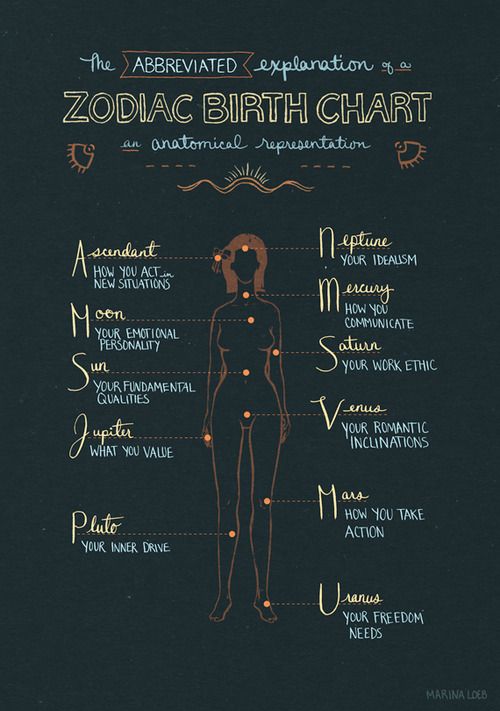 The ABBREVIATED explanation of a
ZODIAC BIRTH CHART
an anatomical representation
Ascendant
HOW YOU ACT in
NEW SITUATIONS
Moon
YOUR EMOTIONAL
PERSONALITY
Sun
YOUR FUNDAMENTAL
QUALITIES
Jupiter
WHAT YOU VALUE
Pluto
YOUR INNER DRIVE
Neptune
YOUR IDEALISM
Mercury
HOW YOU
COMMUNICATE
Saturn
YOUR WORK ETHIC
Venus
YOUR ROMANTIC
INCLINATIONS
Mars
HOW YOU TAKE
ACTION
Uranus
YOUR FREEDOM
NEEDS
MARINA LOEB